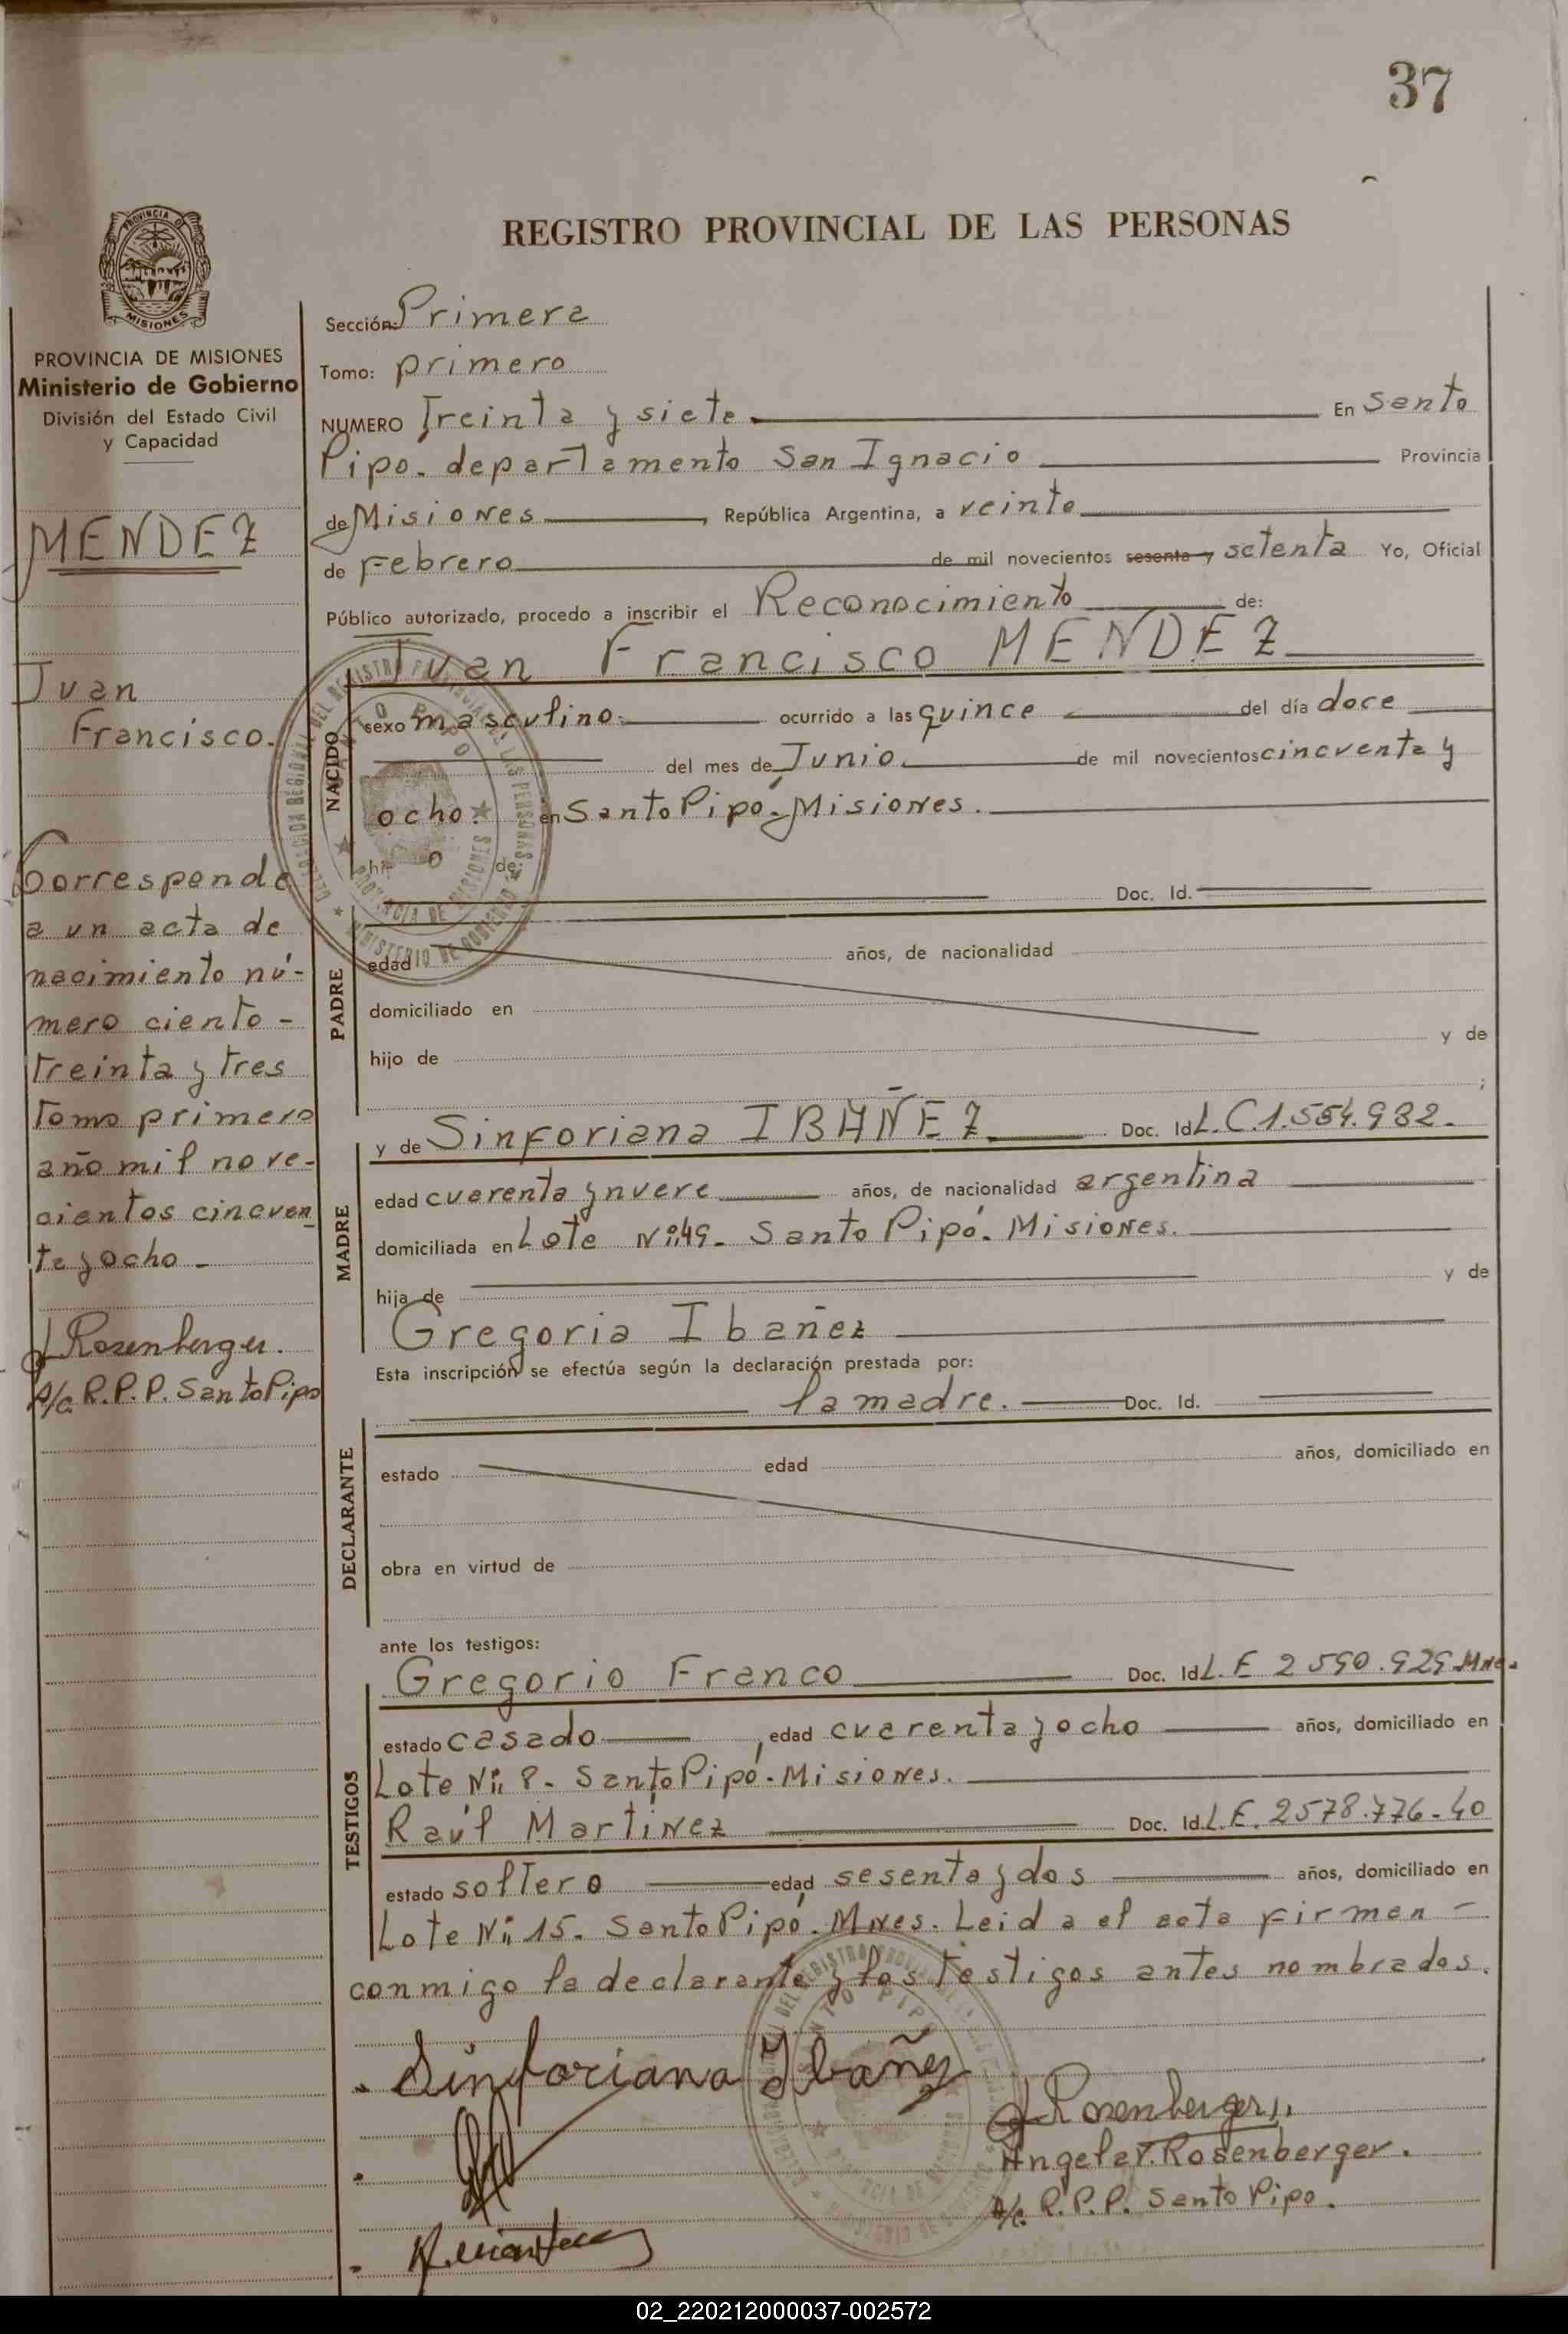 37
REGISTRO PROVINCIAL DE LAS PERSONAS
PROVINCIA DE MISIONES
Ministerio de Gobierno
División del Estado Civil
y Capacidad
MENDEZ
Juan
Francisco.
Corresponde
a un acta de
nacimiento nú-
mero ciento -
treinta y tres
Tomo primero
año mil nove-
cientos cincuen
ta y ocho -
Rosenberger.
A/c. R.P.P. Santo Pipo
Sección: Primera
Tomo: primero
NUMERO Treinta y siete. En Santo
Pipo. departamento San Ignacio Provincia
de Misiones , República Argentina, a veinte
de Febrero de mil novecientos sesenta y setenta Yo, Oficial
Público autorizado, procedo a inscribir el Reconocimiento de:
Juan Francisco MENDEZ
NACIDO
sexo masculino. ocurrido a las quince del día doce
del mes de Junio. de mil novecientos cincuenta y
ocho. en Santo Pipó. Misiones.
hi o de:
Doc. Id.
PADRE
edad años, de nacionalidad
domiciliado en
hijo de y de
;
y de Sinforiana IBAÑEZ Doc. Id L.C.1.554.932.
MADRE
edad cuarenta y nueve años, de nacionalidad argentina
domiciliada en Lote Nº 49. Santo Pipó. Misiones.
hija de y de
Gregoria Ibañez
Esta inscripción se efectúa según la declaración prestada por:
la madre. Doc. Id.
DECLARANTE
estado edad años, domiciliado en
obra en virtud de
ante los testigos:
Gregorio Franco Doc. Id L.E 2590.929 Mnes.
TESTIGOS
estado casado , edad cuarenta y ocho años, domiciliado en
Lote Nº 8. Santo Pipó. Misiones.
Raúl Martinez Doc. Id. L.E. 2578.776-40
estado soltero edad sesenta y dos años, domiciliado en
Lote Nº 15. Santo Pipó. Mnes. Leida el acta firman -
conmigo la declarante y los testigos antes nombrados.
Sinforiana Ibañez
Rosenberger
Angela T. Rosenberger.
A/c. R.P.P. Santo Pipo.
02_220212000037-002572